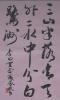 三山半落青天
外二水中分白
鷺洲